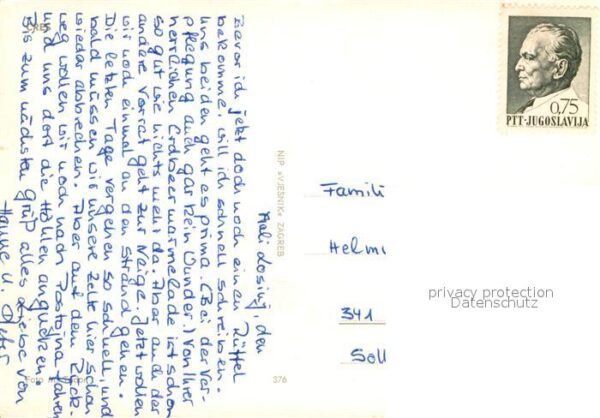 CRES
Mali Losinj, den
Bevor ich jetzt doch noch einen Rüffel
bekomme, will ich schnell schreiben.
Uns beiden geht es prima. (Bei der Ver-
pflegung auch gar kein Wunder.) Von Ihrer
herrlichen Erdbeermarmelade ist schon
so gut wie nichts mehr da. Aber auch der
andere Vorrat geht zur Neige. Jetzt wollen
wir noch einmal an den Strand gehen.
Die letzten Tage vergehen so schnell, und
bald müssen wir unsere Zelte hier schon
wieder abbrechen. Aber auf dem Rück-
weg wollen wir noch nach Postojna fahren
und uns dort die Höhlen angucken.
Bis zum nächsten Gruß alles Liebe von
Hanne u. Peter
Foto
NIP »VJESNIK« ZAGREB
376
0,75
PTT-JUGOSLAVIJA
Famili
Helmu
341
Soll
privacy protection
Datenschutz